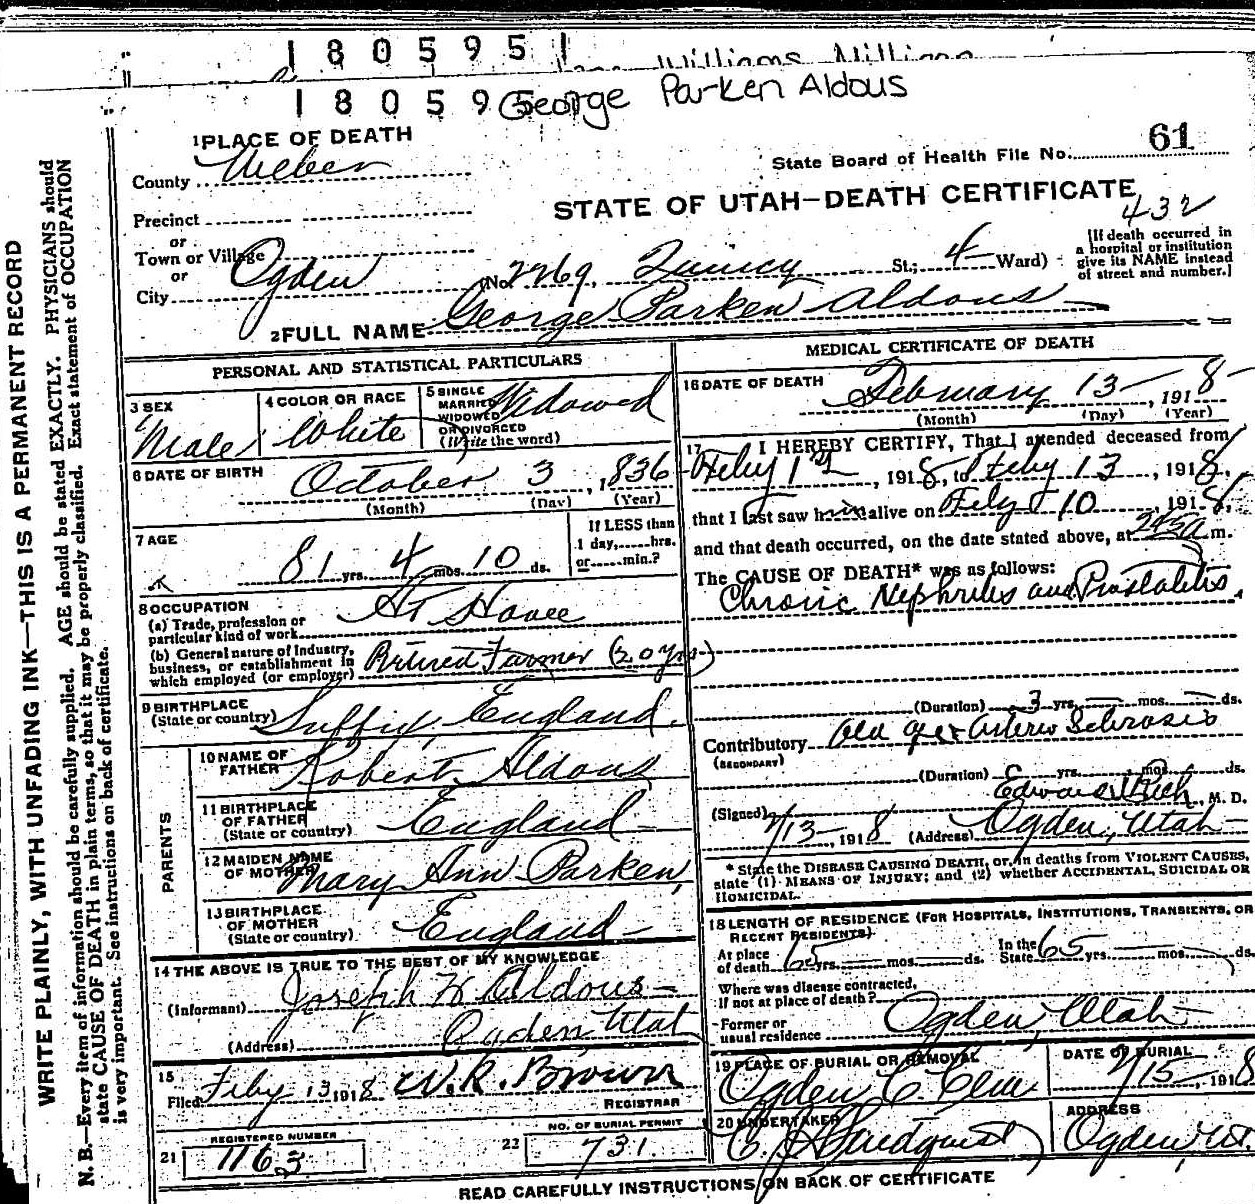 1805951
1805951 George Parken Aldous
1 PLACE OF DEATH
County Weber
State Board of Health File No. 61
Precinct
STATE OF UTAH—DEATH CERTIFICATE
432
or
Town or Village
or
City Ogden (No. 2269, Quincy St.; 4 Ward)
[If death occurred in
a hospital or institution
give its NAME instead
of street and number.]
2 FULL NAME George Parken Aldous
PERSONAL AND STATISTICAL PARTICULARS
3 SEX
Male
4 COLOR OR RACE
White
5 SINGLE
MARRIED
WIDOWED
OR DIVORCED
(Write the word)
Widowed
6 DATE OF BIRTH October 3, 1836
(Month) (Day) (Year)
7 AGE
81 yrs. 4 mos. 10 ds.
If LESS than
1 day,......hrs.
or......min.?
8 OCCUPATION
(a) Trade, profession or
particular kind of work At Home
(b) General nature of Industry,
business, or establishment in
which employed (or employer) Retired Farmer (20 yrs)
9 BIRTHPLACE
(State or country) England.
PARENTS
10 NAME OF
FATHER Robert Aldous
11 BIRTHPLACE
OF FATHER
(State or country) England
12 MAIDEN NAME
OF MOTHER Mary Ann Parken,
13 BIRTHPLACE
OF MOTHER
(State or country) England
14 THE ABOVE IS TRUE TO THE BEST OF MY KNOWLEDGE
(Informant) Joseph W Aldous
(Address) Ogden, Utah
15
Filed Feby 13 1918 W. R. Brown
REGISTRAR
REGISTERED NUMBER
21 1163
NO. OF BURIAL PERMIT
22 731
MEDICAL CERTIFICATE OF DEATH
16 DATE OF DEATH February 13, 1918
(Month) (Day) (Year)
17 I HEREBY CERTIFY, That I attended deceased from
Feby 1st, 1918, to Feby 13, 1918,
that I last saw him alive on Feby 10, 1918,
and that death occurred, on the date stated above, at m.
The CAUSE OF DEATH* was as follows:
Chronic Nephritis and Prostatitis.
(Duration) 3 yrs. mos. ds.
Contributory Old age & Arterio Sclerosis
(SECONDARY)
(Duration) yrs. mos. ds.
(Signed) Edward Rich, M. D.
2/13, 1918 (Address) Ogden, Utah
* State the DISEASE CAUSING DEATH, or, in deaths from VIOLENT CAUSES,
state (1) MEANS OF INJURY; and (2) whether ACCIDENTAL, SUICIDAL OR
HOMICIDAL.
18 LENGTH OF RESIDENCE (FOR HOSPITALS, INSTITUTIONS, TRANSIENTS, OR
RECENT RESIDENTS)
At place
of death 65 yrs. mos. ds. In the State 65 yrs. mos. ds.
Where was disease contracted,
If not at place of death?
Former or
usual residence Ogden, Utah
19 PLACE OF BURIAL OR REMOVAL
Ogden C. Cem
DATE OF BURIAL
2/15, 1918
20 UNDERTAKER
ADDRESS
Ogden, Ut.
READ CAREFULLY INSTRUCTIONS ON BACK OF CERTIFICATE
WRITE PLAINLY, WITH UNFADING INK—THIS IS A PERMANENT RECORD
N. B.—Every item of information should be carefully supplied. AGE should be stated EXACTLY. PHYSICIANS should
state CAUSE OF DEATH in plain terms, so that it may be properly classified. Exact statement of OCCUPATION
is very important. See instructions on back of certificate.